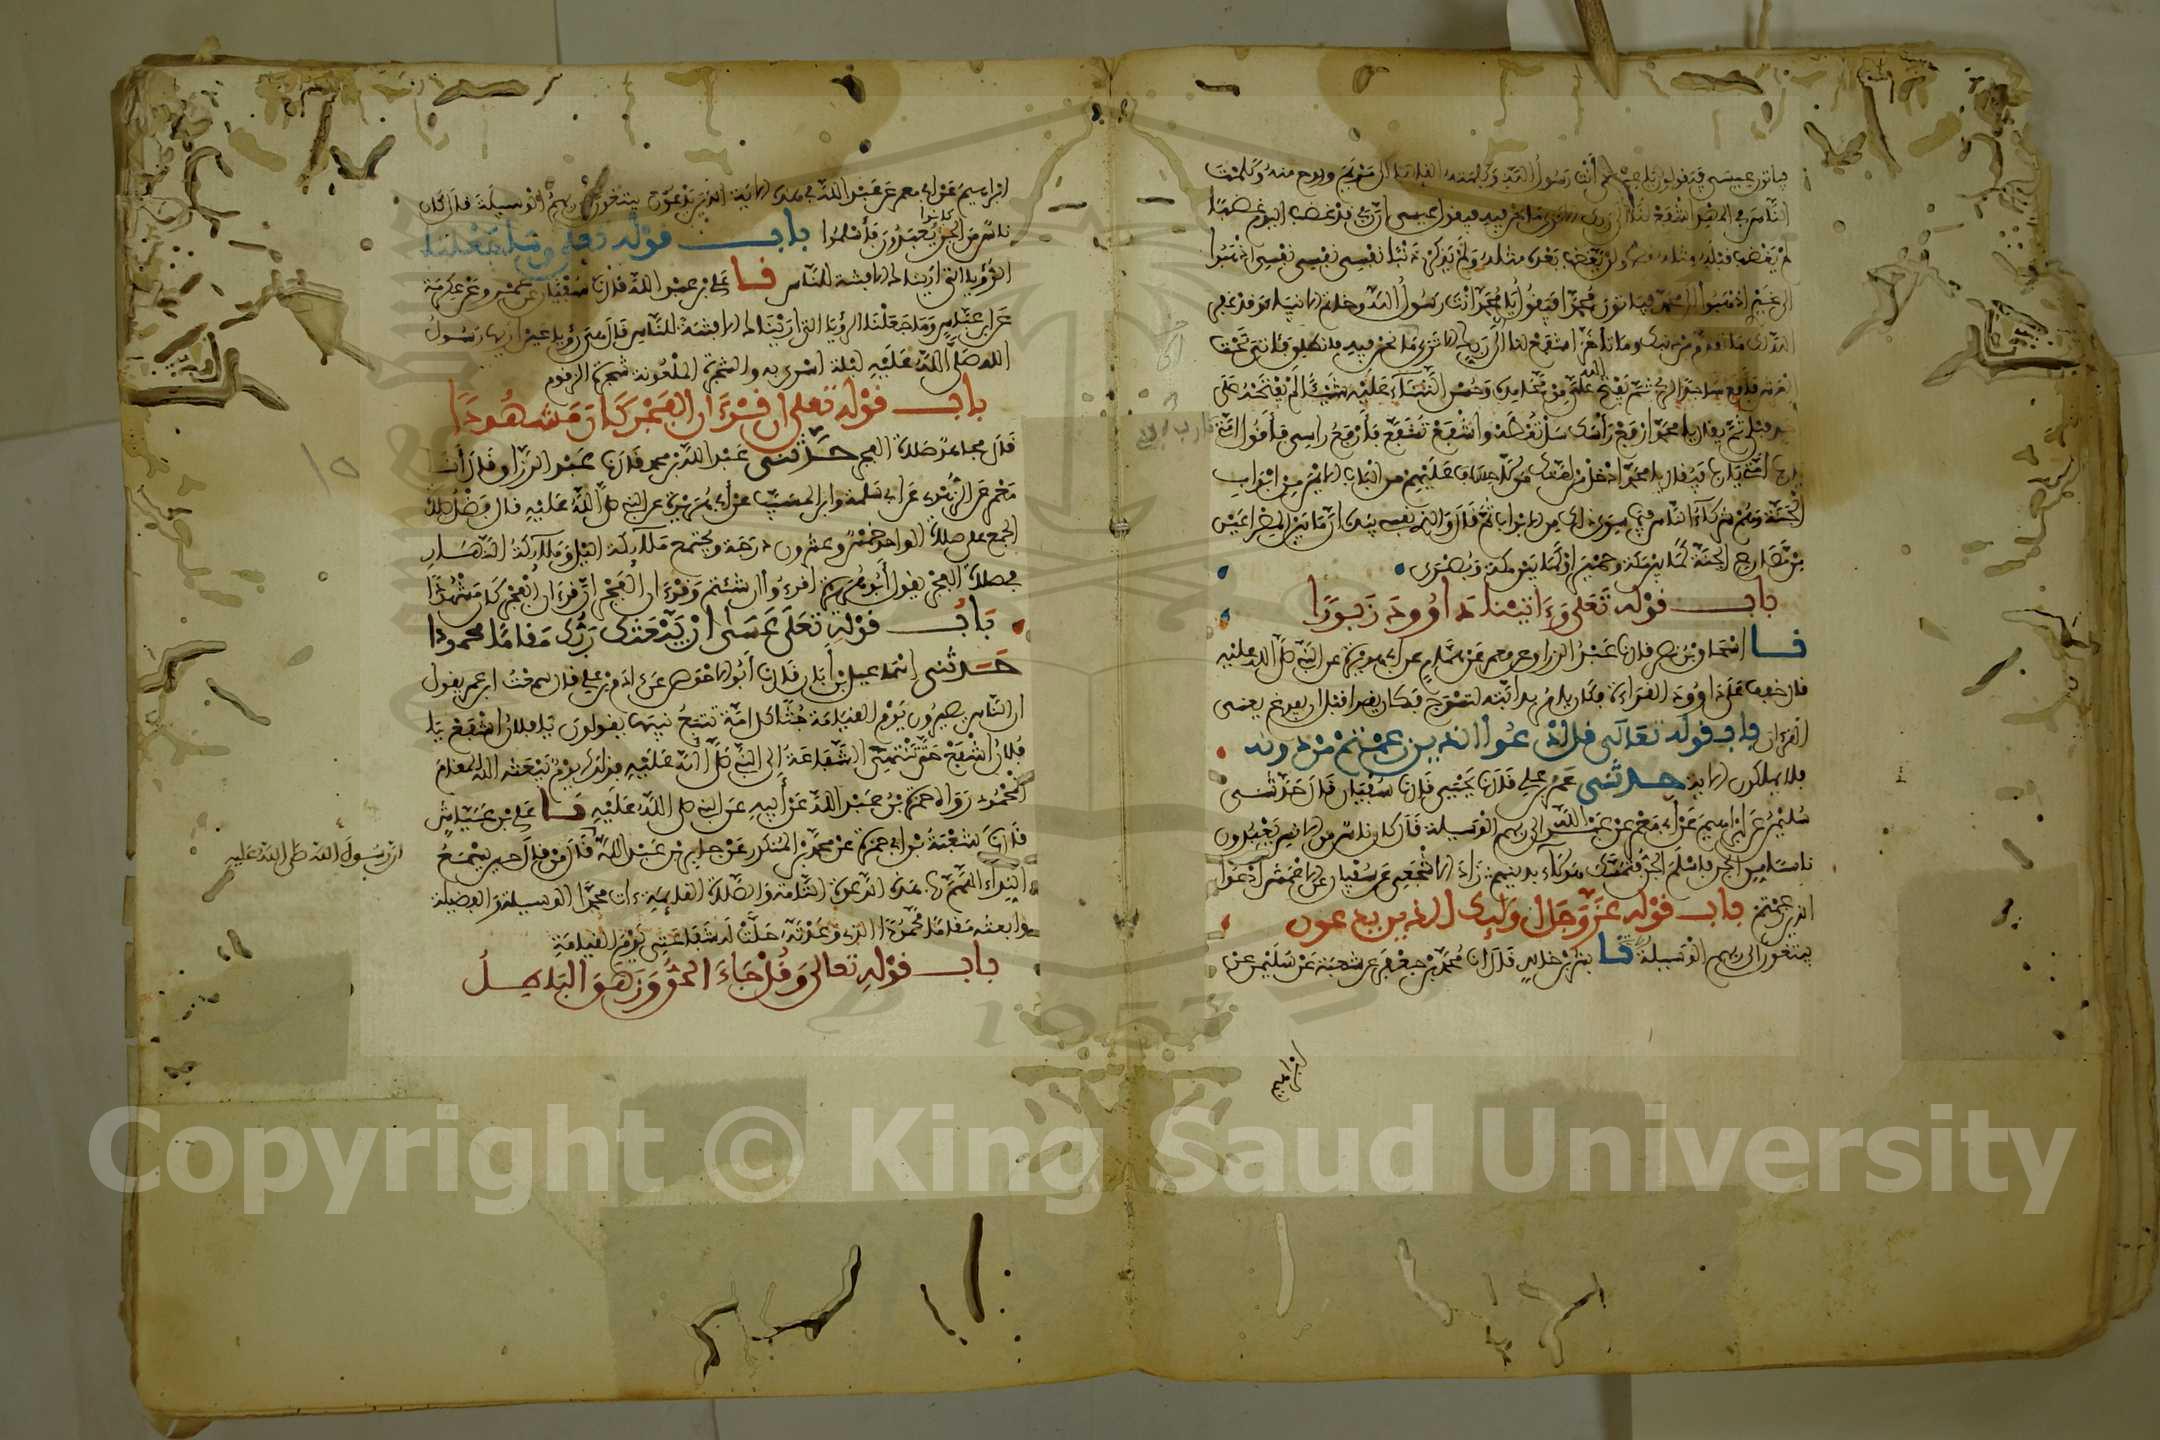 فياتون عيسى فيقولون يا عيسى أنت رسول الله وكلمته ألقاها إلى مريم وروح منه وكلمت
الناس في المهد اشفع لنا إلى ربك ألا ترى ما نحن فيه فيقول عيسى إن ربي قد غضب اليوم غضبا
لم يغضب قبله مثله ولن يغضب بعده مثله ولم يذكر ذنبا نفسي نفسي نفسي اذهبوا
إلى غيري اذهبوا إلى محمد فياتون محمدا فيقولون يا محمد أنت رسول الله وخاتم الانبياء وقد غفر
الله لك ما تقدم من ذنبك وما تأخر اشفع لنا إلى ربك الا ترى ما نحن فيه فانطلق فآتي تحت
العرش فأقع ساجدا لربي ثم يفتح الله علي من محامده وحسن الثناء عليه شيئا لم يفتحه على
أحد قبلي ثم يقال يا محمد ارفع رأسك سل تعطه واشفع تشفع فأرفع راسي فأقول امتي
يا رب امتي يا رب فيقال يا محمد ادخل من امتك من لا حساب عليهم من الباب الايمن من ابواب
الجنة وهم شركاء الناس فيما سوى ذلك من الابواب ثم قال والذي نفسي بيده ان ما بين المصراعين
من مصاريع الجنة كما بين مكة وحمير او كما بين مكة وبصرى
باب قوله تعلى وءاتينا داوود زبورا
نا اسحاق بن نصر قال نا عبد الرزاق عن معمر عن همام عن ابي هريرة عن النبي صلى الله عليه
قال خفف على داوود القراءة فكان يامر بدابته لتسرج فكان يقرا قبل ان يفرغ يعني
القرءان باب قوله تعالى قل ادعوا الذين زعمتم من دونه
فلا يملكون الاية حدثني عمرو بن علي قال نا يحيى قال نا سفيان قال حدثني
سليمن عن ابراهيم عن أبي معمر عن عبد الله الى ربهم الوسيلة قال كان ناس من الانس يعبدون
ناسا من الجن فاسلم الجن وتمسك هؤلاء بدينهم زاد الاشجعي عن سفيان عن الاعمش قل ادعوا
الذين زعمتم باب قوله عز وجل اولئك الذين يدعون
يبتغون الى ربهم الوسيلة نا بشر بن خالد قال نا محمد بن جعفر عن شعبة عن سليمن عن
ابراهيم
ابراهيم عن ابي معمر عن عبد الله في هذه الاية الذين يدعون يبتغون الى ربهم الوسيلة قال كان
ناس من الجن كانوا يعبدون فأسلموا باب قوله تعلى وما جعلنا
الرؤيا التي أريناك الا فتنة للناس نا علي بن عبد الله قال نا سفيان عن عمرو عن عكرمة
عن ابن عباس وما جعلنا الرؤيا التي اريناك الا فتنة للناس قال هي رؤيا عين اريها رسول
الله صلى الله عليه ليلة اسري به والشجرة الملعونة شجرة الزقوم
باب قوله تعلى ان قرءان الفجر كان مشهودا
قال مجاهد صلاة الفجر حدثني عبد الله بن محمد قال نا عبد الرزاق قال أنا
معمر عن الزهري عن ابي سلمة وابن المسيب عن أبي هريرة عن النبي صلى الله عليه قال فضل صلاة
الجمع على صلاة الواحد خمس وعشرون درجة وتجتمع ملائكة الليل وملائكة النهار
في صلاة الفجر يقول أبو هريرة اقرءوا ان شئتم وقرءان الفجر ان قرءان الفجر كان مشهودا
باب قوله تعلى عسى ان يبعثك ربك مقاما محمودا
حدثني إسماعيل بن أبان قال نا أبو الاحوص عن ءادم بن علي قال سمعت ابن عمر يقول
ان الناس يصيرون يوم القيامة جثا كل امة تتبع نبيها يقولون يا فلان اشفع يا
فلان اشفع حتى تنتهي الشفاعة إلى النبي صلى الله عليه فذلك يوم يبعثه الله المقام
المحمود رواه حمزة بن عبد الله عن أبيه عن النبي صلى الله عليه نا علي بن عياش
قال نا شعيب بن ابي حمزة عن محمد بن المنكدر عن جابر بن عبد الله قال من قال حين يسمع
ان رسول الله صلى الله عليه
النداء اللهم رب هذه الدعوة التامة والصلاة القائمة ءات محمدا الوسيلة والفضيلة
وابعثه مقاما محمودا الذي وعدته حلت له شفاعتي يوم القيامة
باب قوله تعالى وقل جاء الحق وزهق الباطل
Copyright © King Saud University
1957